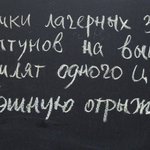 лагерных з
птунов на вы
илят одного ц
шную отрыж